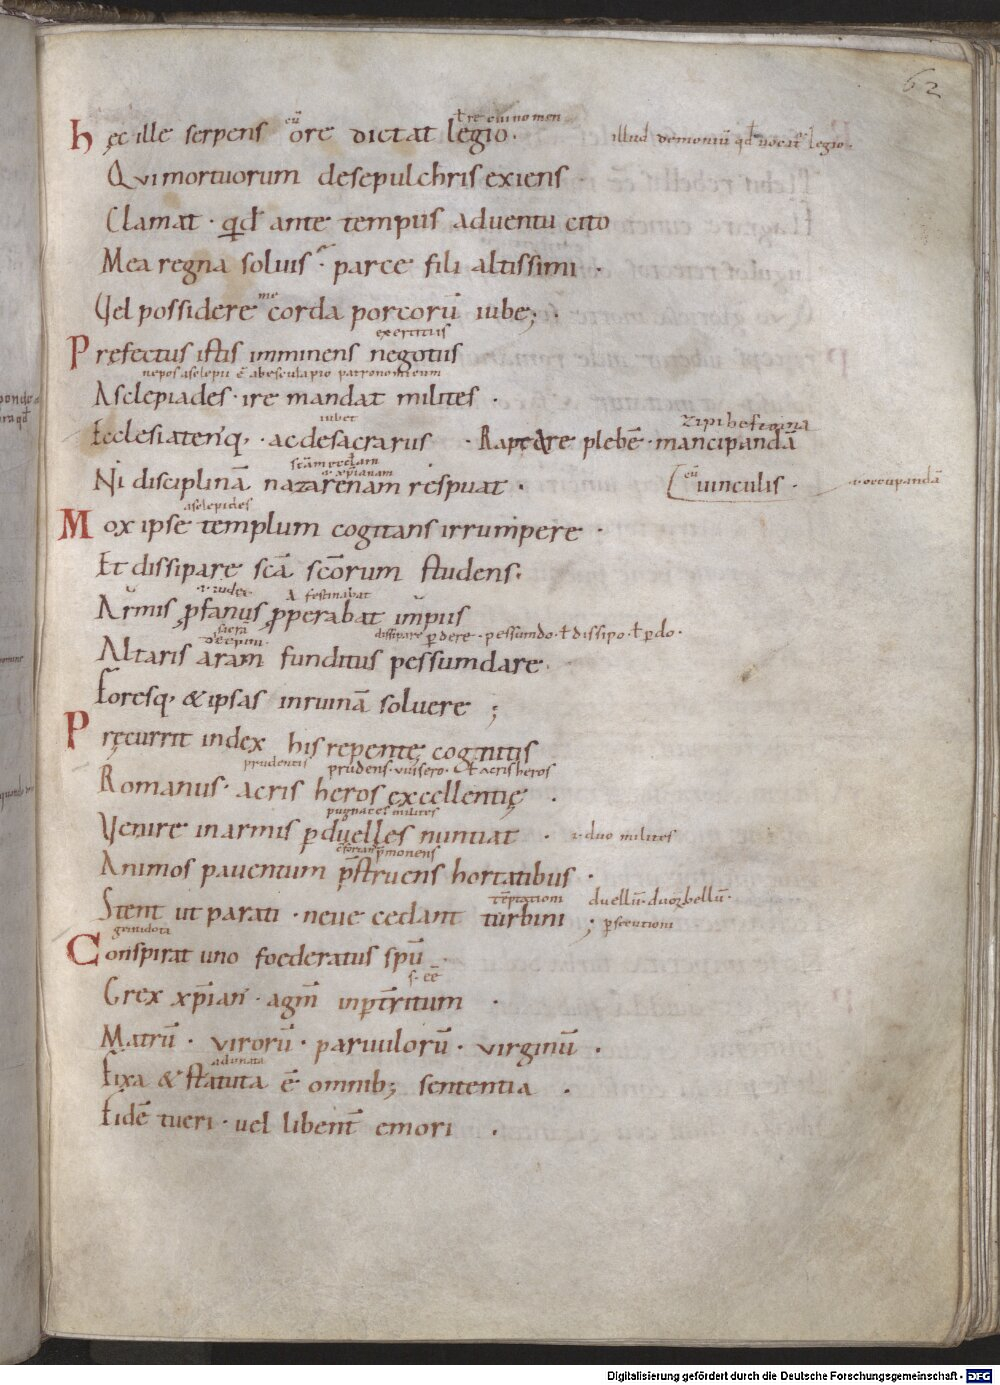 62
ł re cui nomen
eū
hęc ille serpens ore dictat legio · illud demoniū qđ uocat̄ legio ·
Qui mortuorum desepulchris exiens ·
Clamat · qđ ante tempus aduentu cito
Mea regna soluis · parce fili altissimi ·
me
Vel possidere corda porcorū iube; ·
exercitus
Prefectus istis imminens negotiis
nepos asclepii ē ab esculapio patronomicum
Asclepiades · ire mandat milites ·
iubet
Ecclesiateriq, · ac desacrarus · Raptare plebē · mancipandā
Ni disciplinā nazarenam respuat · uinculis · occupandā
asclepides
Mox ipse templum cogitans irrumpere ·
Et dissipare scā scōrum studens ·
i· iudex festinabat
Armis ꝓfanus ꝓperabat impius
sacra dissipare ꝑdere · pessundo · ł dissipo · ł ꝑdo ·
Altaris aram funditus pessumdare ·
Foresq, & ipsas inruinā soluere ;
Pręcurrit index his repente cognitis
prudentis prudens · uisero · & acris heros
Romanus · acris heros excellentię ·
pugnates milites
Venire inarmis ꝑduelles nuntiat · i· duo milites
p̄monens
Animos pauentum p̄struens hortatibus ·
tēptationi duellū · duoꝝ bellū ·
Stent ut parati · neue cedant turbini ; ꝑsecutioni
Conspirat uno foederatus spū
s· eē
Grex xp̄ian̄ · agm̄ inꝑtr̄ritum ·
Matrū · virorū · paruulorū · virginū ·
adunata
Fixa & statuta ē omnib; sententia ·
Fidē tueri · uel libent̄ emori ·
Digitalisierung gefördert durch die Deutsche Forschungsgemeinschaft - DFG